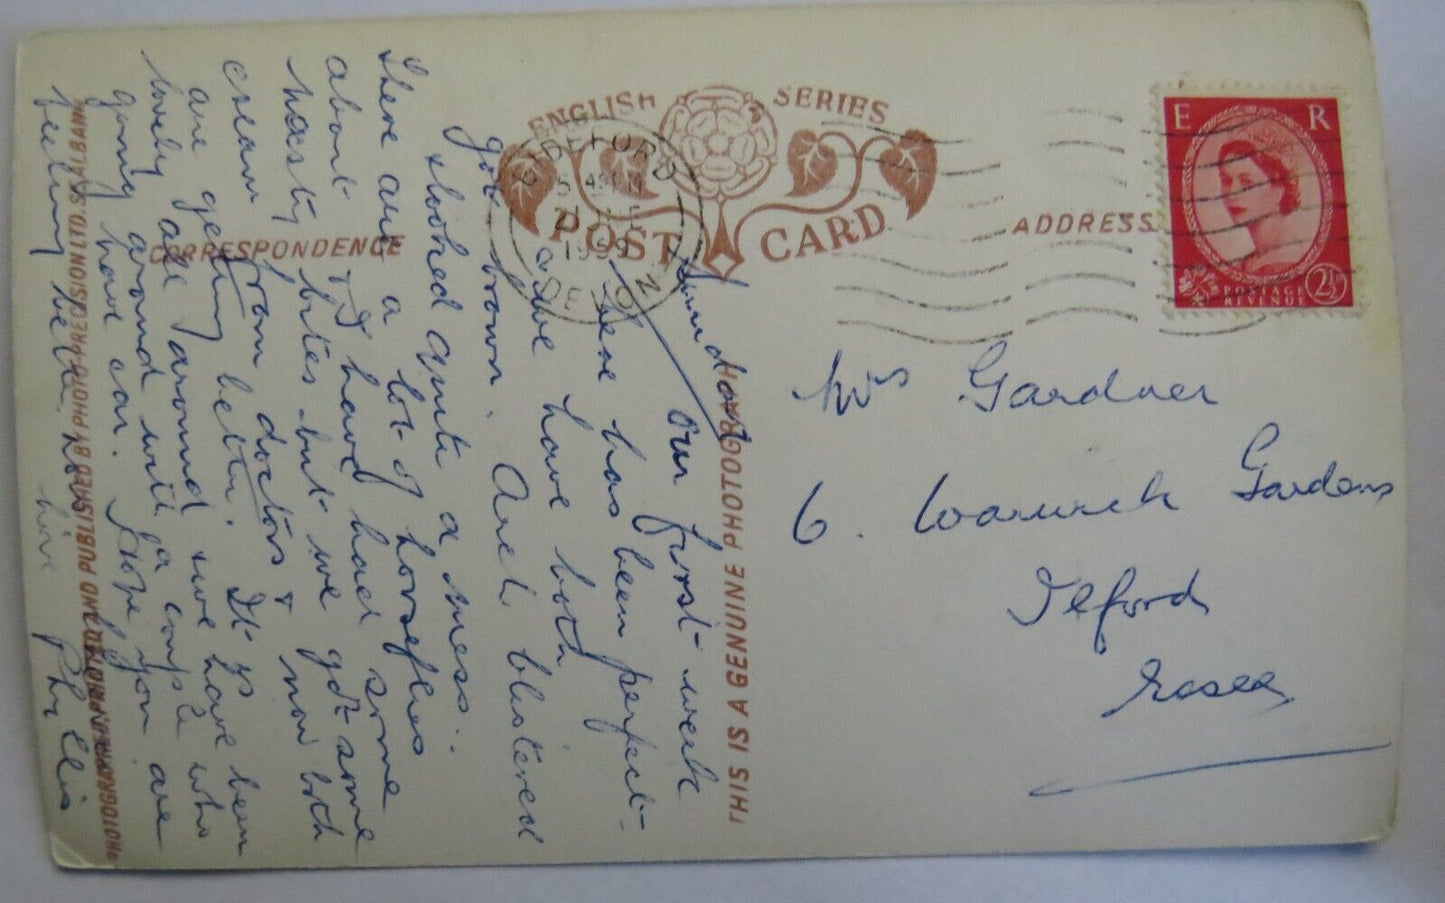 ENGLISH SERIES
POST CARD
CORRESPONDENCE
ADDRESS
BIDEFORD
DEVON
E R
POSTAGE
REVENUE
2½D
Mrs Gardner
6. Warwick Gardens
Ilford
Essex
THIS IS A GENUINE PHOTOGRAPH
PHOTOGRAPHED AND PUBLISHED BY PHOTO PRECISION LTD. ST. ALBANS
Sunday
Our first week
here has been perfect
& we have both
got brown. Arch blistered
& looked quite a mess.
There are a lot of horseflies
about & I have had some
nasty bites but we got some
cream from doctors & now both
are getting better. It is
lovely all around & we have been
going around with a couple who
have car. Hope you are
feeling better now
love Phyllis